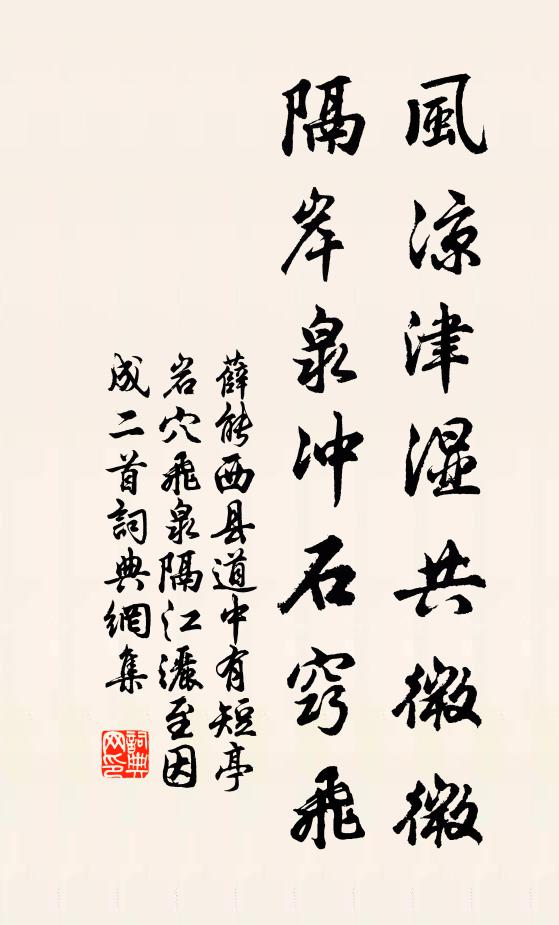 風凉津湿共微微
隔岸泉冲石窍飛
薛能西县道中有短亭
岩穴飛泉隔江灑至因
成二首詞典網集
詞典
网印